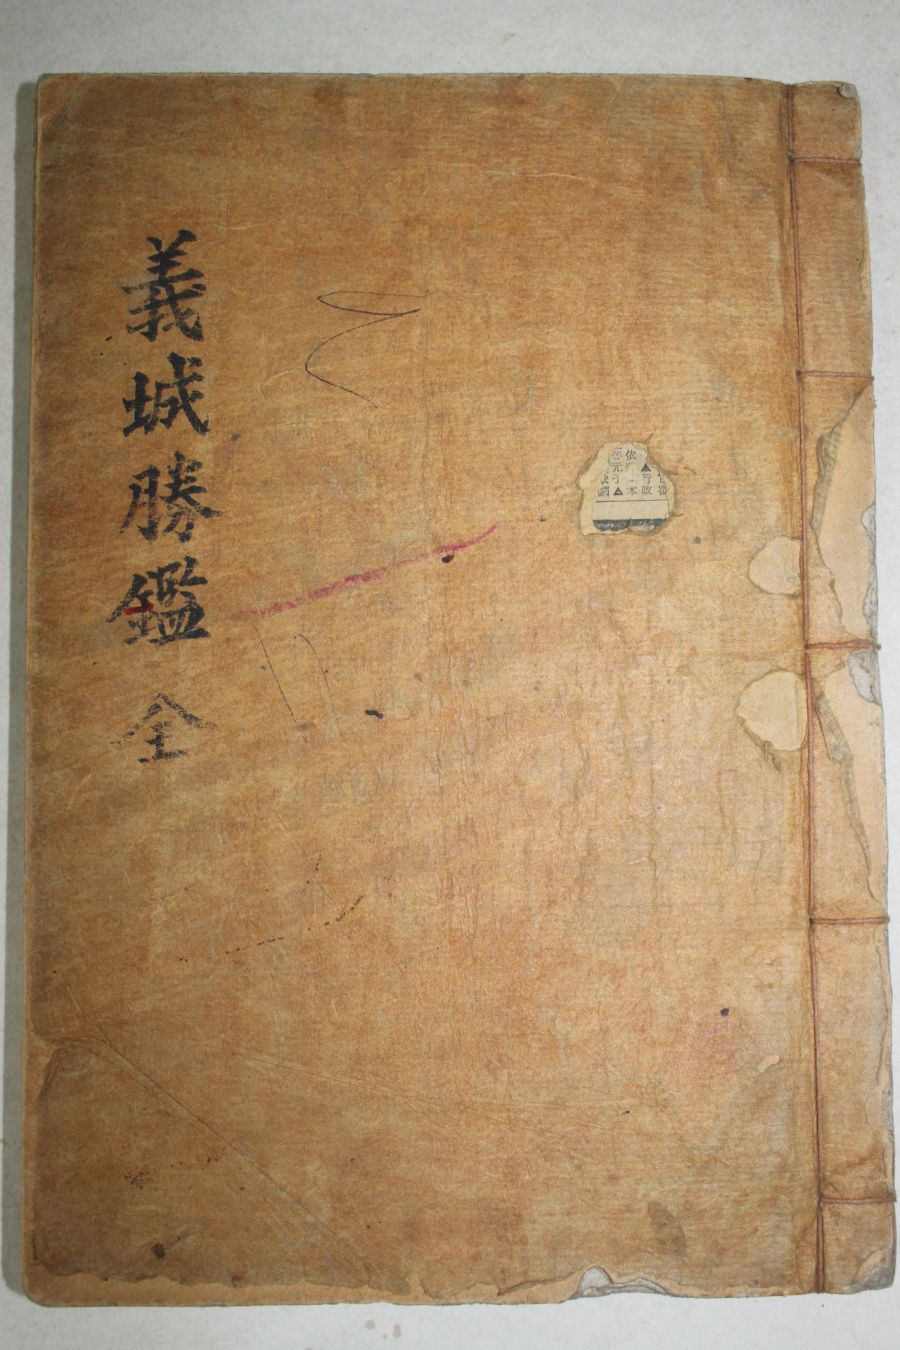 義城勝鑑 全